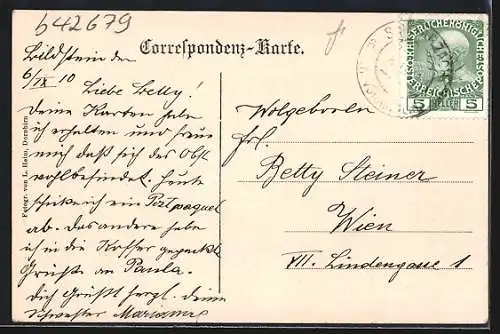 b42679
Correspondenz-Karte.
Bildstein den
6/IX 10
Liebe Betty!
Deine Karten habe
ich erhalten und freue
mich daß sich das Obst
wohlbefindet. Heute
schicke ich ein Postpaquet
ab. Das andere habe
ich in die Koffer gepackt.
Grüße an Paula.
Dich Grüßt herzl. deine
Schwester Marianne
Fotogr. von L. Heim, Dornbirn
KAISERLICHE KÖNIGLICHE
ÖSTERREICHISCHE
5 HELLER 5
Wolgeboren
Frl.
Betty Steiner
Wien
VII. Lindengasse 1